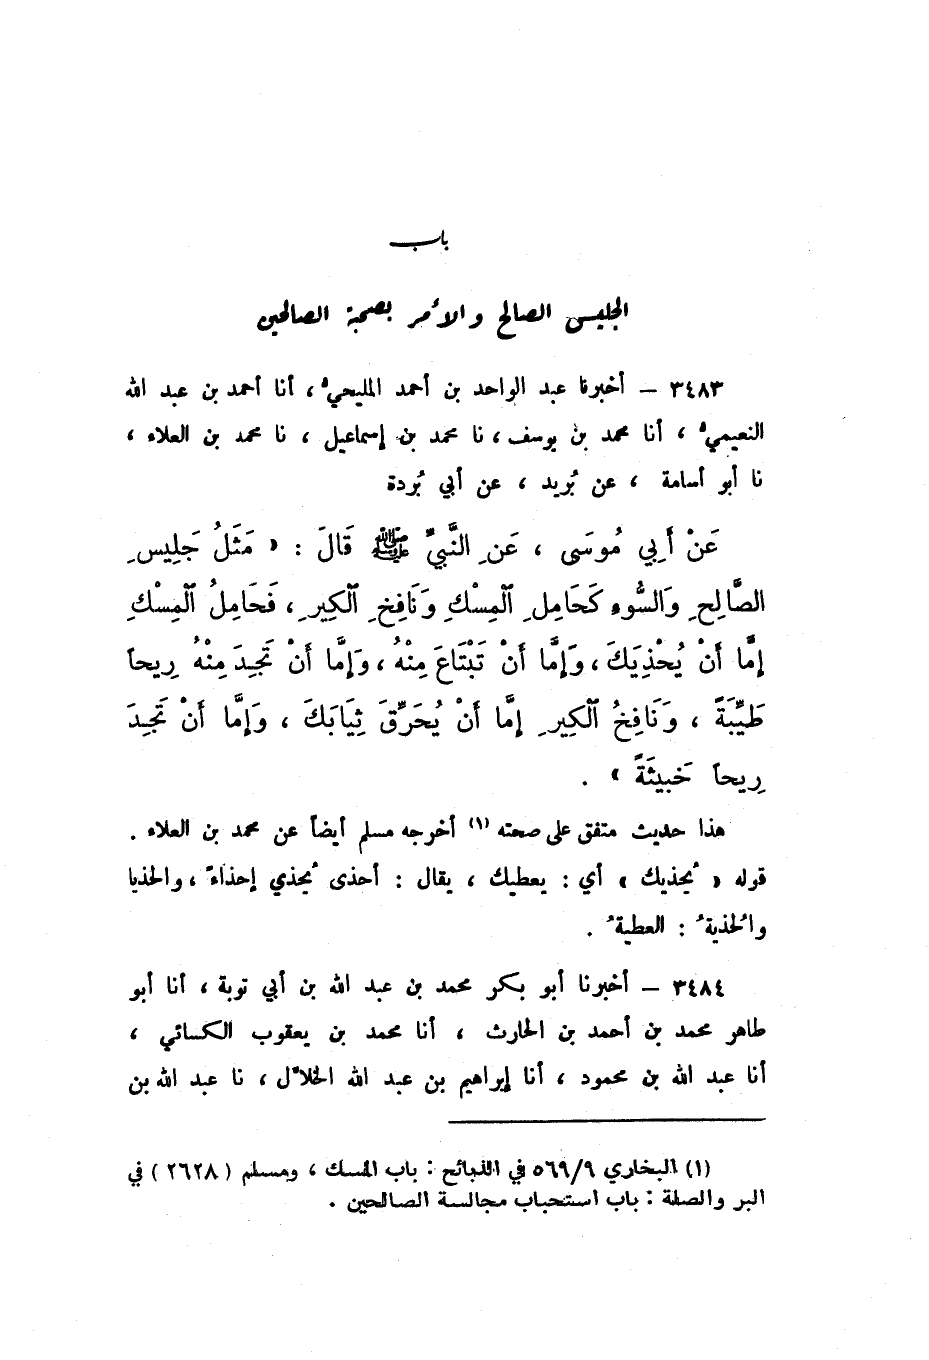 باب
الجليس الصالح والأمر بصحبة الصالحين
٣٤٨٣ – أخبرنا عبد الواحد بن أحمد المليحيُّ ، أنا أحمد بن عبد الله
النعيميُّ ، أنا محمد بن يوسف ، نا محمد بن إسماعيل ، نا محمد بن العلاء ،
نا أبو أسامة ، عن بُريد ، عن أبي بُردة
عَنْ أَبِي مُوسَى ، عَنِ النَّبِيِّ ﷺ قَالَ : « مَثَلُ جَلِيسِ
الصَّالِحِ وَالسُّوءِ كَحَامِلِ ٱلْمِسْكِ وَنَافِخِ ٱلْكِيرِ ، فَحَامِلُ ٱلْمِسْكِ
إِمَّا أَنْ يُحْذِيَكَ ، وَإِمَّا أَنْ تَبْتَاعَ مِنْهُ ، وَإِمَّا أَنْ تَجِدَ مِنْهُ رِيحاً
طَيِّبَةً ، وَنَافِخُ ٱلْكِيرِ إِمَّا أَنْ يُحَرِّقَ ثِيَابَكَ ، وَإِمَّا أَنْ تَجِدَ
رِيحاً خَبِيثَةً » .
هذا حديث متفق على صحته (١) أخرجه مسلم أيضاً عن محمد بن العلاء .
قوله « يُحذيك » أي : يعطيك ، يقال : أحذى يُحذي إحذاءً ، والحذيا
والحُذيةُ : العطيةُ .
٣٤٨٤ – أخبرنا أبو بكر محمد بن عبد الله بن أبي توبة ، أنا أبو
طاهر محمد بن أحمد بن الحارث ، أنا محمد بن يعقوب الكسائي ،
أنا عبد الله بن محمود ، أنا إبراهيم بن عبد الله الخلاّل ، نا عبد الله بن
(١) البخاري ٥٦٩/٩ في الذبائح : باب المسك ، ومسلم ( ٢٦٢٨ ) في
البر والصلة : باب استحباب مجالسة الصالحين .